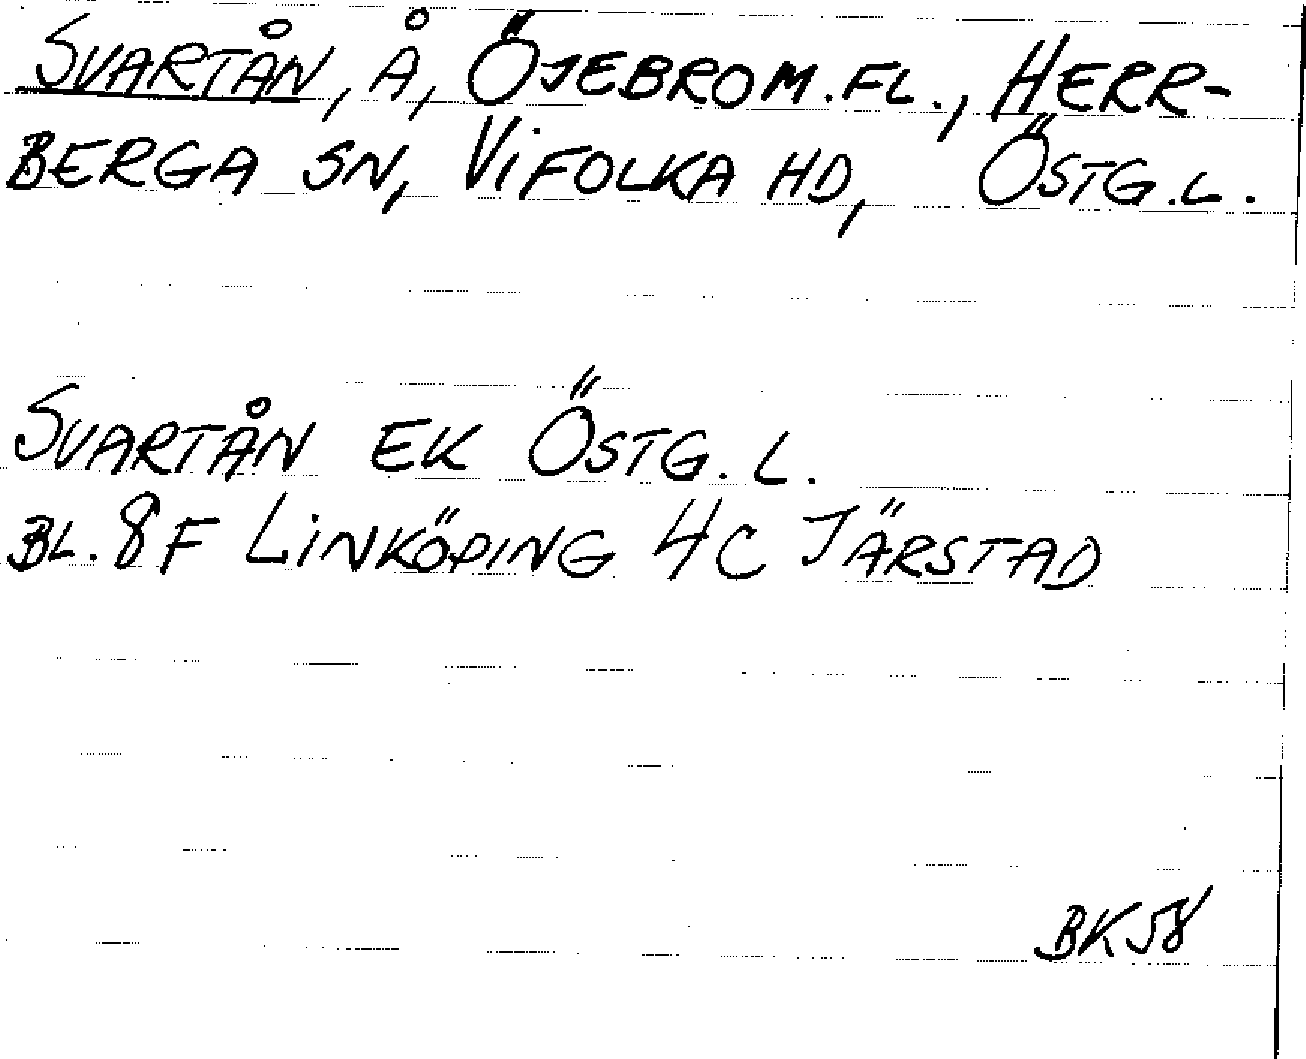 SVARTÅN, Å, ÖJEBROM.FL., HERR-
BERGA SN, VIFOLKA HD, ÖSTG.L.
SVARTÅN EK ÖSTG.L.
BL. 8F LINKÖPING 4C JÄRSTAD
BK58